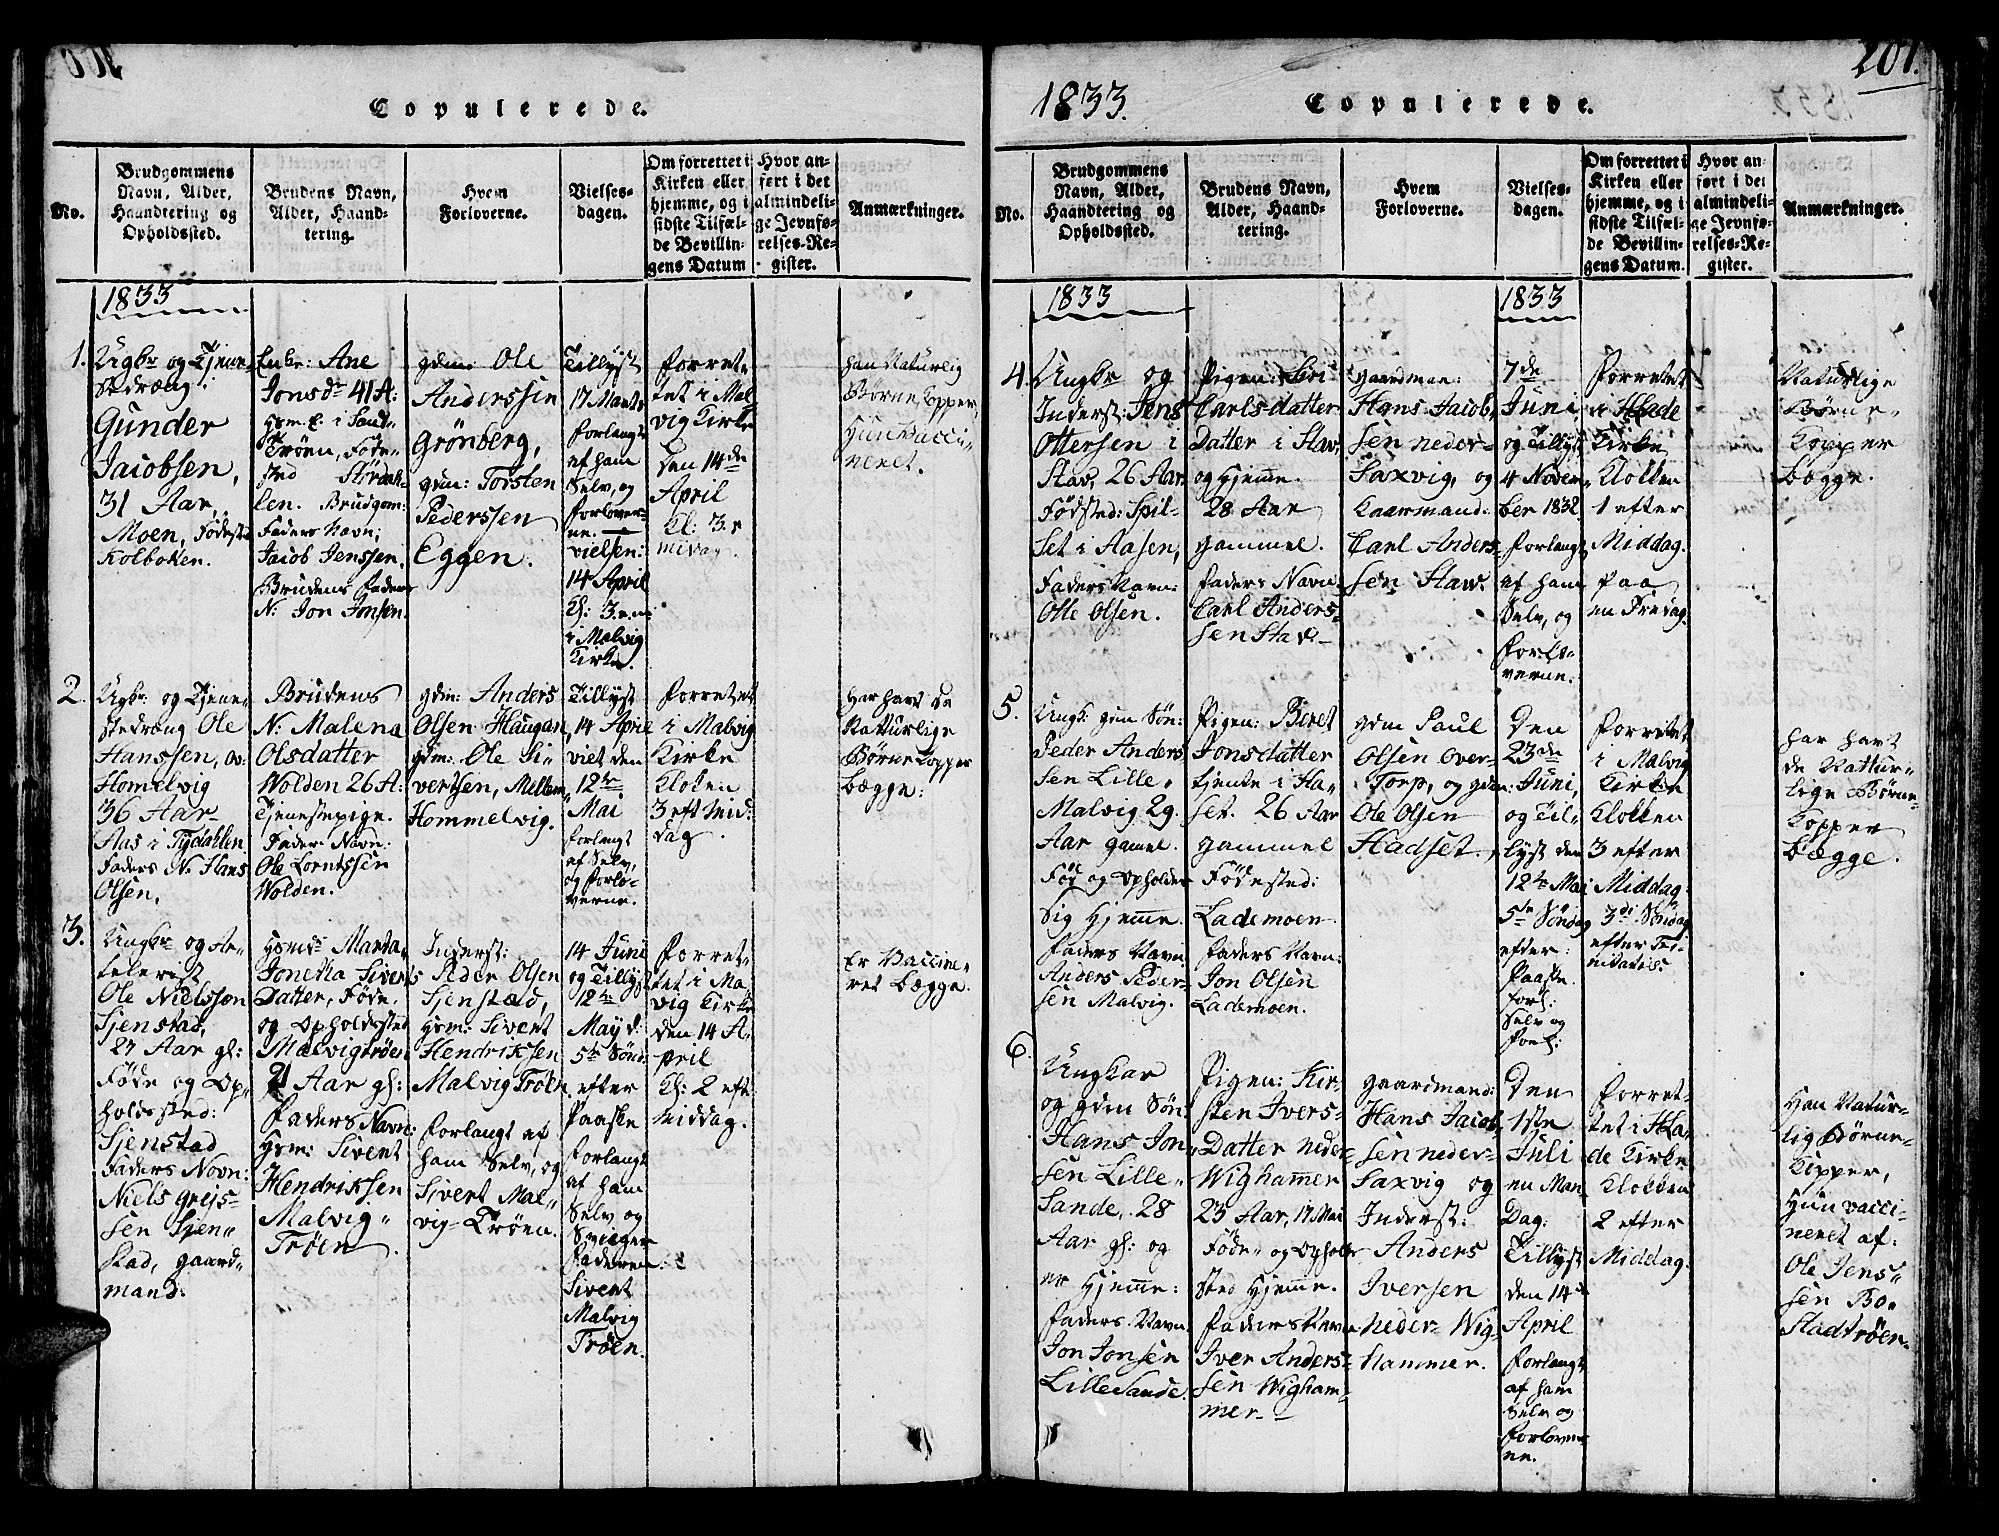 201.
Copulerede.
No.
Brudgommens
Navn, Alder,
Haandtering og
Opholdssted.
Brudens Navn,
Alder, Haand-
tering.
Hvem
Forloverne.
Vielses-
dagen.
Om forrettet i
Kirken eller
hjemme, og i
sidste Tilfæl-
de Bevillin-
gens Datum
Hvor an-
ført i det
almindeli-
ge Jevnfø-
relses-Re-
gister.
Anmærkninger.
1833
1.
Ugbr og Tjene-
stedræng:
Gunder
Jacobsen,
31 Aar,
Moen, Fødested
Kolboken.
Enke: Ane
Jonsdr 41 A:
Hsm. E. i Sand-
Trøen, Føde-
sted Størdah-
len. Brudgom:
Faders Navn;
Jacob Jenssen,
Brudens Faders
N: Jon Jonsen.
gdm: Ole
Anderssen
Grönberg,
gdm: Torsten
Pederssen
Eggen.
Tillyst
17 Marts
forlangt
af ham
Selv, og
forlover-
ne.
vielsen:
14 April
Kl: 3 em:
i Malvig
Kirke.
forret-
tet i Mal
vig Kirke
den 14de
April
Kl: 3 e
midag.
han Naturlig
Børne Kopper,
Hun Vacci-
neret.
2.
Ugbr. og Tjene-
stedræng Ole
Hanssen, ov:
Homelvig
36 Aar-
Aas i Tydahlen
Faders N: Hans
Olsen.
Brudens
N: Malena
Olsdatter
Wolden 26 A:
Tjenestepige.
Fader Navn:
Ole Lorntssen
Wolden.
gdm: Anders
Olsen Haugan,
gdm: Ole Si-
vertsen, Mellem-
Hommelvig.
Tillyst
14 April
viet den
12te
Mai
forlangt
af Selv,
og forlo-
verne.
forretet
i Malvig
Kirke
Kloken
3 eft Mid:
dag.
har havt de
Naturlige
Børne Kopper
begge:
3.
Ungkr og Ar-
telerist
Ole Nielssøn
Sjenstad,
27 Aar gl:
Føde og Op-
holdssted:
Sjenstad
Faders Novn:
Niels Grejs-
sen Sjen-
stad, gaard-
mand:
Hsmds Marta
Jonetta Siverts
Datter, Føde.
og Opholdssted
Malvigtrøen
21 Aar gl:
Faders Navn:
Hsm: Sivert
Hendriksen
Malvig-
Trøen.
Inderst:
Peder Olsen
Sjenstad,
Hsm: Sivert
Hendriksen
Malvig Trøen.
forlangt af
ham Selv, og
Sivert Mal-
vig-Trøen.
14 Juni
og Tillyst
12te
May d:
5te Sønd:
efter
Paaske
forlangt
af ham
Selv og
Svieger
faderen:
Sivert
Malvig
Trøen.
forret-
tet i Ma-
vig Kirke
den 14 A-
pril
Kl: 2 eft:
middag.
Er Vaccine-
ret begge.
1833.
Copulerede.
No.
Brudgommens
Navn, Alder,
Haandtering og
Opholdssted.
Brudens Navn,
Alder, Haand-
tering.
Hvem
Forloverne.
Vielses-
dagen.
Om forrettet i
Kirken eller
hjemme, og i
sidste Tilfæl-
de Bevillin-
gens Datum.
Hvor an-
ført i det
almindeli-
ge Jevnfø-
relses-Re-
gister.
Anmærkninger.
1833
1833
4.
Ungkr og
Inderst: Jens
Ottersen i
Stav, 26 Aar.
Fødsted: Spil-
set i Aasen,
Faders Navn:
Ole Olsen.
Pigen: Siri
Carlsdatter
Datter i Stav,
og Hjemme.
28 Aar
gammel.
faders Navn
Carl Anders-
sen Stav.
gaardman:
Hans Jacob-
sen neder-
Saxvig, og
Kaarmand:
Carl Anders-
sen Stav.
7de
Juni
og Tillyst
4 Novem-
ber 1832
forlangt
af ham
Selv, og
forlo-
verne.
forretet
i Hlade
Kirke
Klokken
1 efter
Middag.
paa
en Fredag.
Naturlige
Børne-
Kopper
begge.
5.
Ungk: gdm Søn:
Peder Anders
sen Lille-
Malvig 29.
Aar gamel.
Fød og opholder
Sig Hjemme.
Faders Navn.
Anders Peder-
sen Malvig.
Pigen: Beret
Jonsdatter
tjente i Ha-
set. 26 Aar
gammel
Fødested:
Lademoen.
Faders Navn:
Jon Olsen
Lademoen.
gdm Paul
Olsen over-
Torp, og gdm:
Ole Olsen
Hadset.
Den
23de
Juni,
og Til-
lyst den
12te Mai
5te Søndag
efter
Paaske.
forl:
Selv og
forl:
forretet
i Malvig
Kirke
Klokken
3 efter
Middag:
3di Søndag
efter Tri-
nitatis:
har havt
de Nattur-
lige Børne-
Kopper
begge.
6.
Ungkar
og gdm Søn:
Hans Jon
sen Lille-
Sande, 28
Aar gl: og
er Hjemme:
faders Navn.
Jon Jonsen
Lille Sande.
Pigen: Kir-
sten Ivers-
Datter neder-
Wighammer
23 Aar, 17 Mai
Føde- og Ophold-
sted Hjemme.
Faders Navn
Iver Anders-
sen Wigham-
mer.
gaardmand:
Hans Jacob-
sen neder-
Saxvig og
Inderst:
Anders
Iversen
neder-Wig-
hammer.
Den
1ste
Juli
en Man
Dag:
Tillyst
den 14de
April
forlangt
af ham
Selv og
forlover
ne.
forret-
tet i Hla-
de Kirke
Klokken
2 efter
Middag:
Han Natur-
lig Børne-
Kopper,
Hun vacci-
neret af:
Ole Jens-
sen Bo-
stadtrøen.